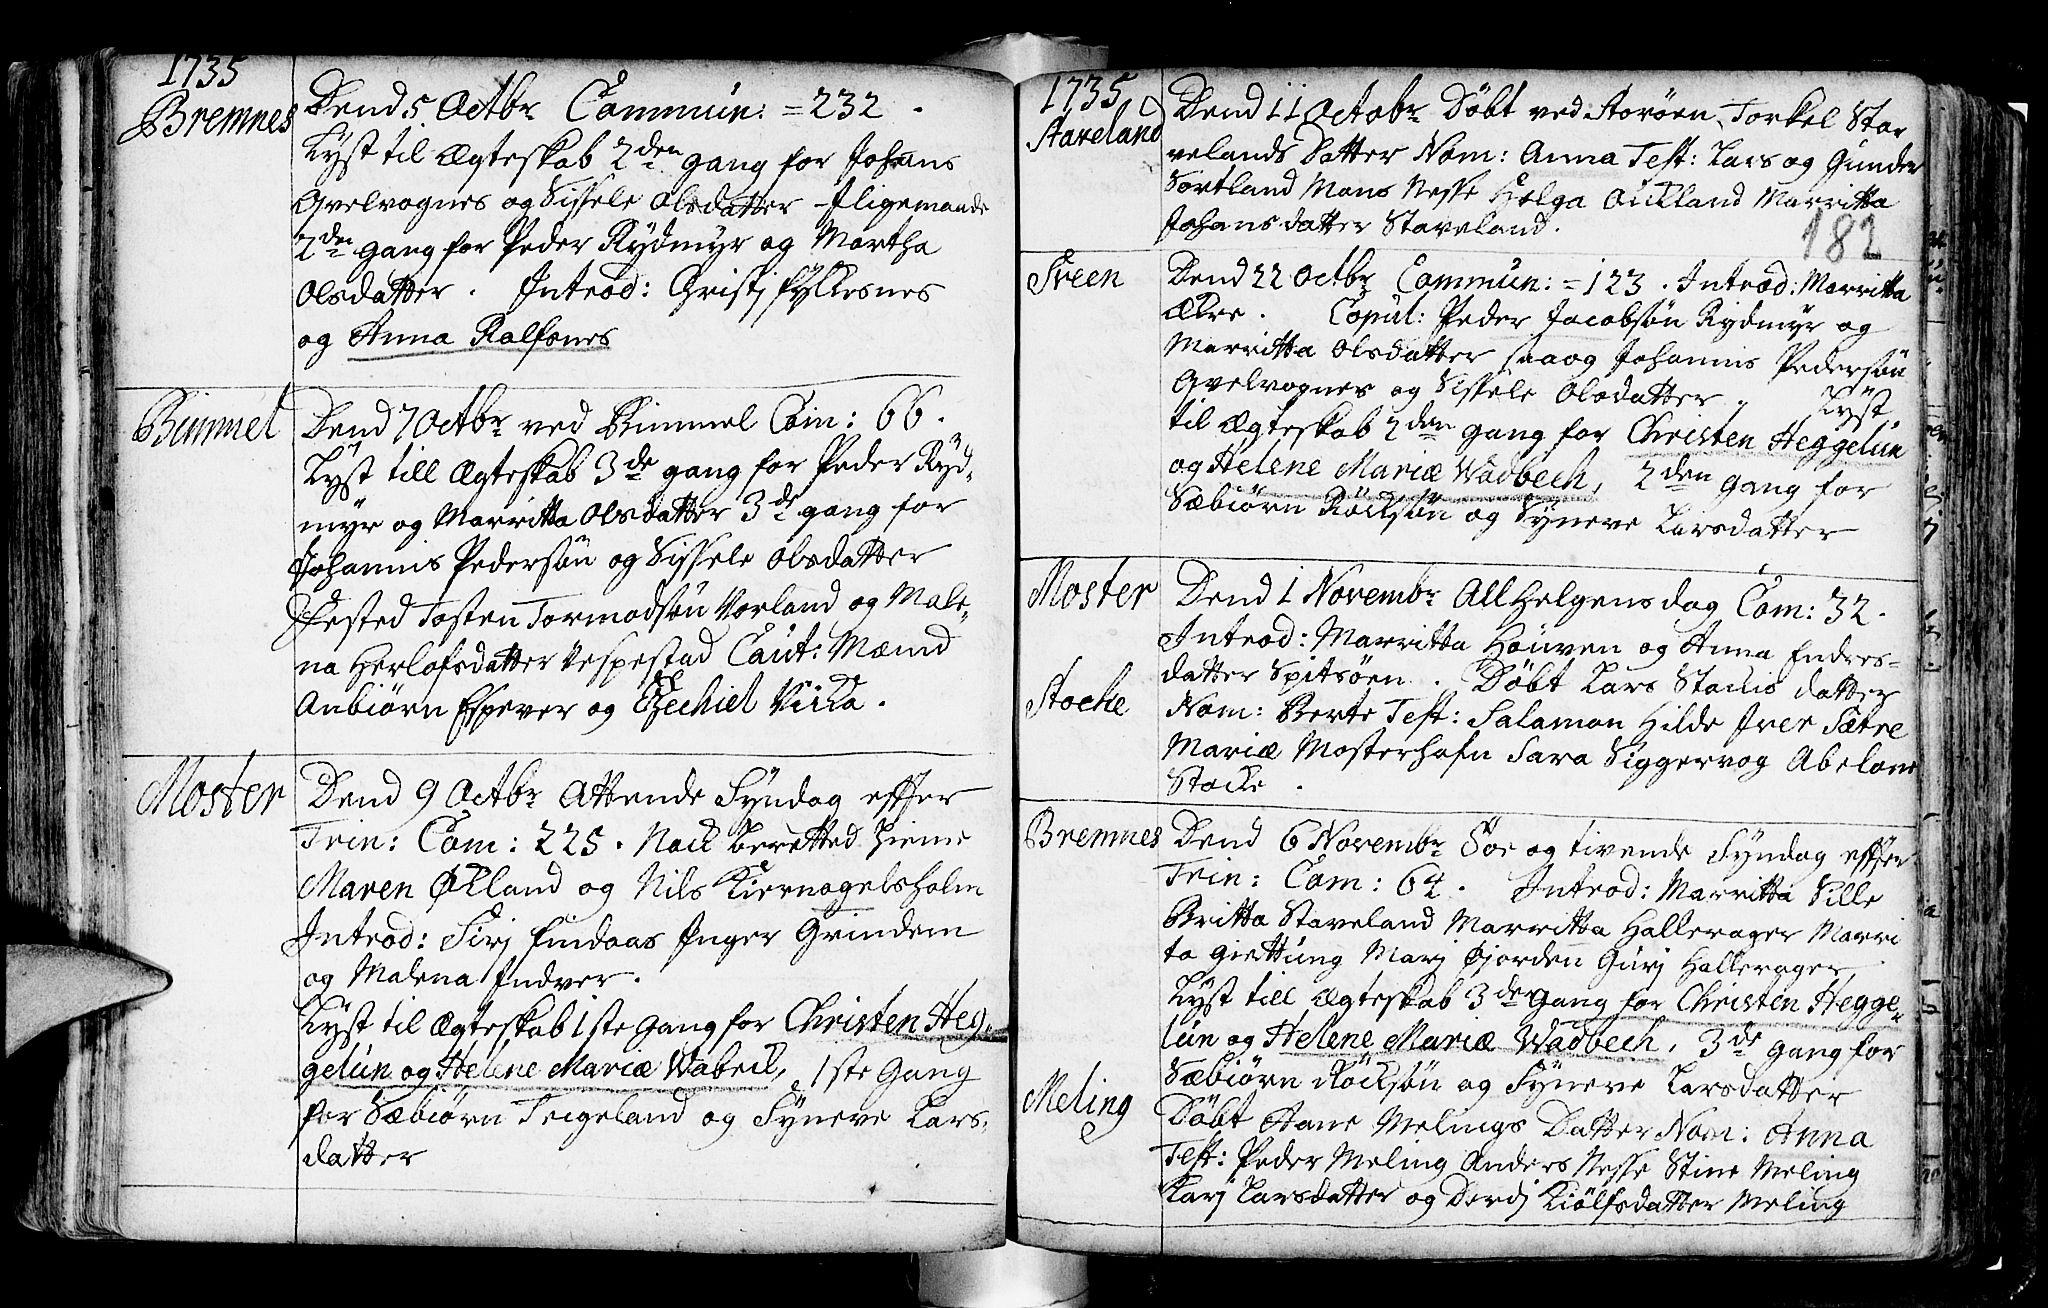 1735
Bremnes
Dend 5. Octbr Commun: = 232 .
Lyst til Ægteskab 2den gang for Johans
Qvelvognes og Sissele Olsdatter Iligemaade
2den gang for Peder Rydmyr og Martha
Olsdatter . Introd: Christj
og Anna Rolfsnes
Bimmel
Dend 7 Octbr ved Bimmel Com: 66.
Lyst till Ægteskab 3de gang for Peder Ryd,
myr og Marritta Olsdatter 3de gang for
Johannis Pedersøn og Sissele Olsdatter
Fested Tosten Tormodsøn Vorland og Male,
na Herlofsdatter Vespestad Caut: Mænd
Anbiørn Espever og Ezechiel Vicka.
Moster
Dend 9 Octbr Attende Syndag effter
Trin: Com: 225 . Nock beretted hieme
Maren Økland og Nils Kiernagelsholm
Introd: Sirj Findaas Inger Grindem
og Malena Indver.
Lyst til Ægteskab 1ste Gang for Christen Heg,
gelun og Helene Mariæ Wabeck, 1ste Gang
for Sæbiørn Teigeland og Syneve Lars,
datter
1735
Staveland
Dend 11 Octobr Døbt ved Storøen Torkel Sta
velands Datter Nom: Anna Test: Lars og Gunder
Sortland Mons Nesse Helga Auckland Marritta
Johansdatter Staveland.
182
Sveen
Dend 22 Octbr Commun: = 123 . Introd: Marritta
Ækre . Copul: Peder Jacobsøn Rydmyr og
Marritta Olsdatter saaog Johannis Pedersøn
Qvelvognes og Sissele Olsdatter . Lyst
til Ægteskab 2den gang for Christen Heggelun
og Helene Mariæ Wadbech, 2den gang for
Sæbiørn Røcksøn og Syneve Larsdatter
Moster
Dend 1 Novembr All Helgens dag Com: 32.
Introd: Marritta Houven og Anna Endres-
datter Spitsøen . Døbt Lars Stockis datter
Stocke
Nom: Berte Test: Salamon Hilde Iver Sætre
Mariæ Mosterhafn Sara Siggervog Abelone
Stocke .
Bremnes
Dend 6 Novembr Toe og tivende Syndag effter
Trin: Com: 64. Introd: Marritta Sille
Britta Staveland Marritta Hallerager Marri
ta Giettung Marj Gjorden Gurj Hallerager,
Lyst till Ægteskab 3de gang for Christen Hegge,
lun og Helene Mariæ Wadbech, 3de gang for
Sæbiørn Røcksøn og Syneve Larsdatter
Meling
Døbt Aane Melings Datter Nom: Anna
Test: Peder Meling Anders Nesse Stine Meling
Karj Larsdatter og Dordj Kiølfsdatter Meling